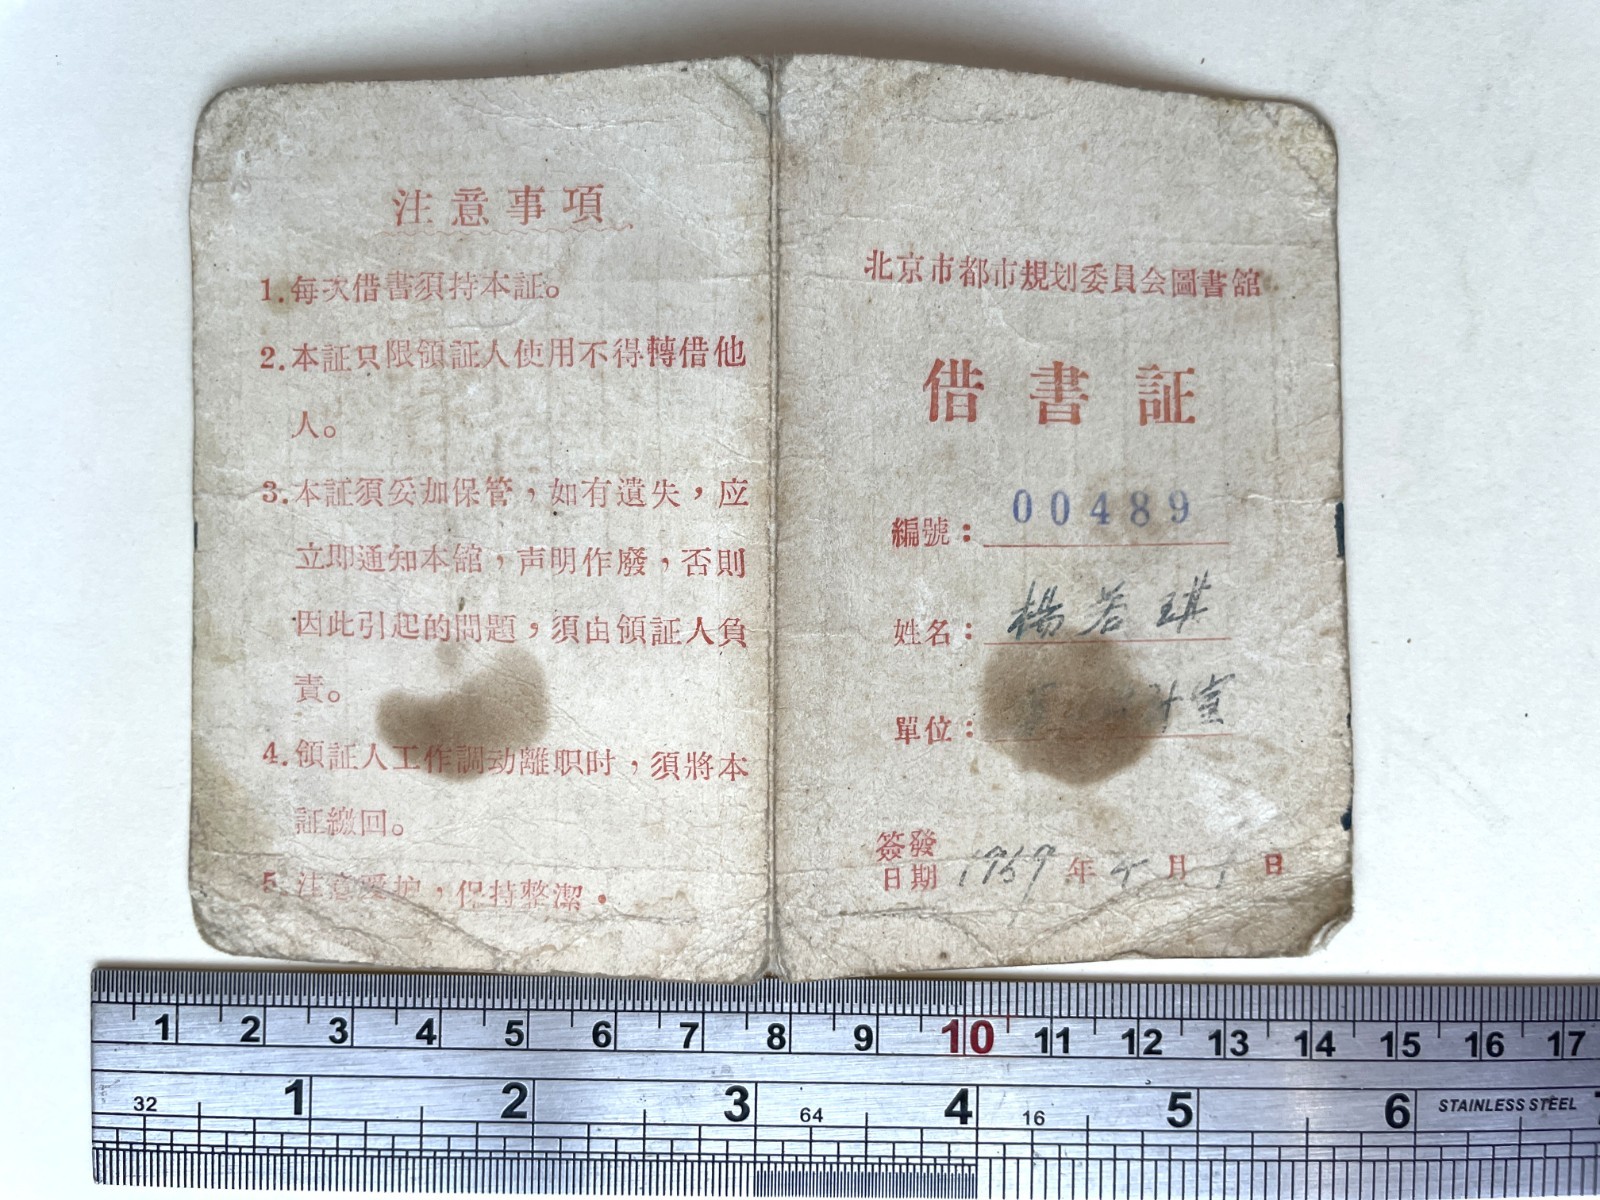 注意事項
1. 每次借書須持本証。
2. 本証只限領証人使用不得轉借他
人。
3. 本証須妥加保管，如有遺失，应
立即通知本舘，声明作廢，否則
因此引起的問題，須由領証人負
責。
4. 領証人工作調动離职时，須將本
証繳回。
5. 注意爱护，保持整潔．
北京市都市規划委員会圖書舘
借書証
編號： 00489
姓名： 楊若琪
單位： 計室
簽發
日期 1959年 月 1日
1 2 3 4 5 6 7 8 9 10 11 12 13 14 15 16 17
32 1 2 3 64 4 16 5 6 STAINLESS STEEL